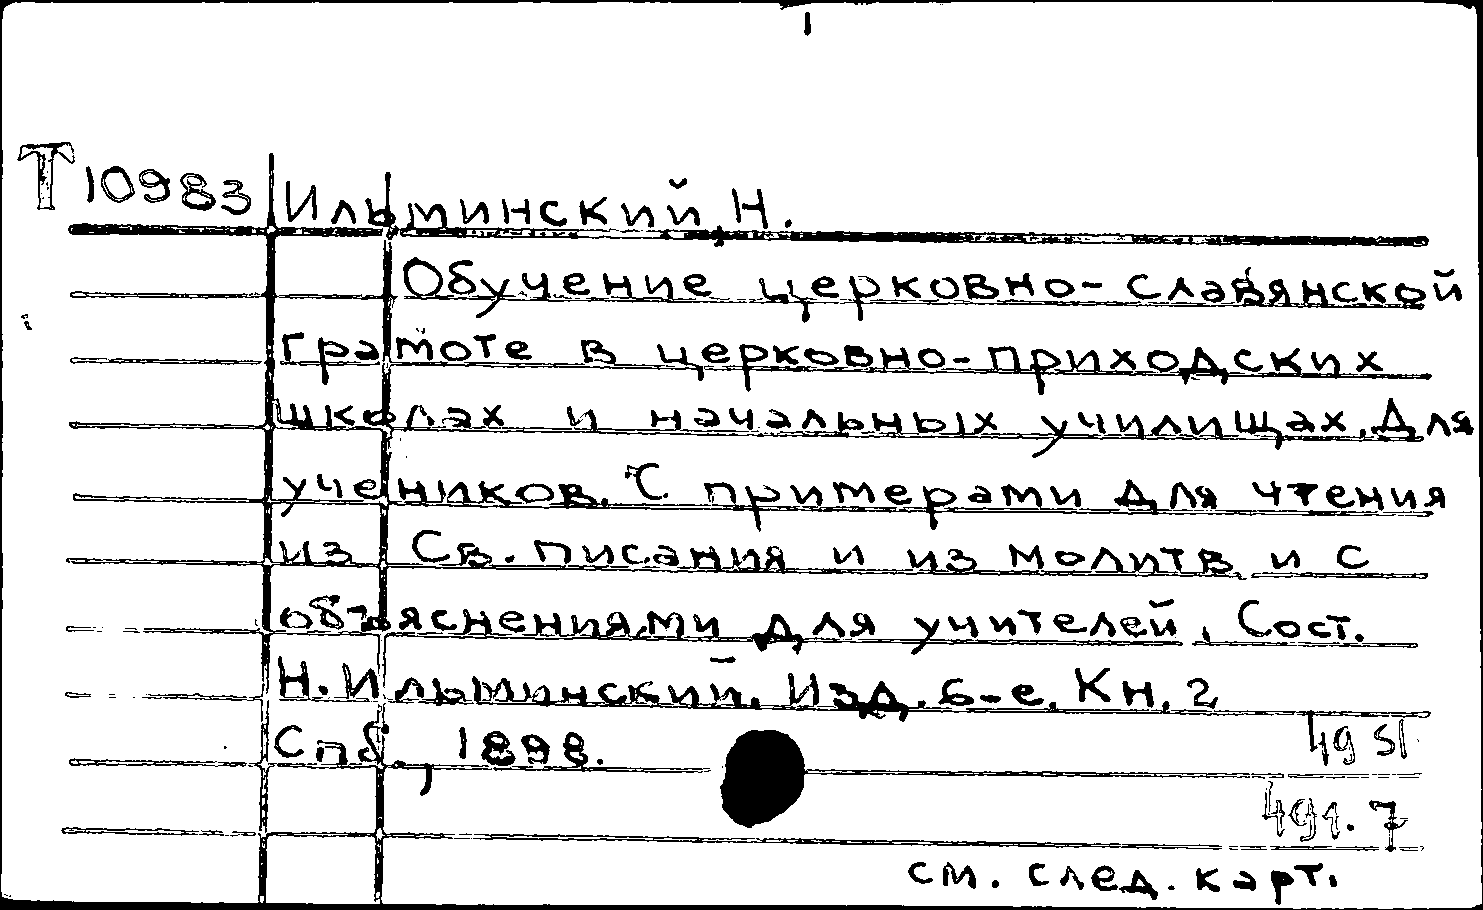 Т 10983 Ильминский, Н.
Обучение церковно-славянской
грамоте в церковно-приходских
школах и начальных училищах. Для
учеников. С примерами для чтения
из Св. писания и из молитв и с
объяснениями для учителей. Сост.
Н. Ильминский. Изд. 6-е. Кн. 2
Спб., 1898.
49 Sl
491.7
см. след. карт.